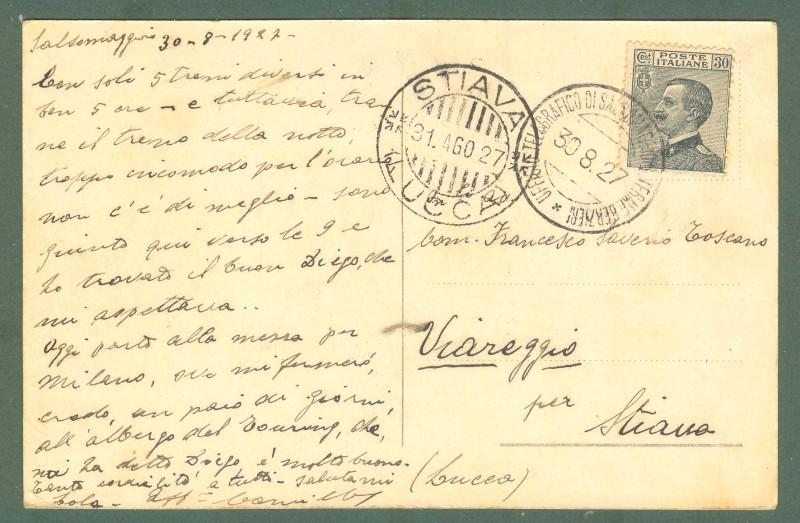 Salsomaggiore 30-8-1927-
Con soli 5 treni diversi in
ben 5 ore - e tuttavia, tran
ne il treno della notte,
troppo incomodo per l'orario
non c'è di meglio - sono
giunto qui verso le 9 e
ho trovato il buon Diego, che
mi aspettava..
Oggi parto alla messa per
Milano, ove mi fermerò,
credo, un paio di giorni,
all'albergo del Touring, che,
mi ha detto Diego è molto buono.
Tante cordialità a tutti - salutami
Lola - aff=
STIAVA
31.AGO 27
LUCCA
UFFICIO TELEGRAFICO DI SALSOMAGGIORE
30.8.27
TERME BERZIERI
POSTE
ITALIANE
Cent 30
Com. Francesco Saverio Toscano
Viareggio
per
Stiava
(Lucca)